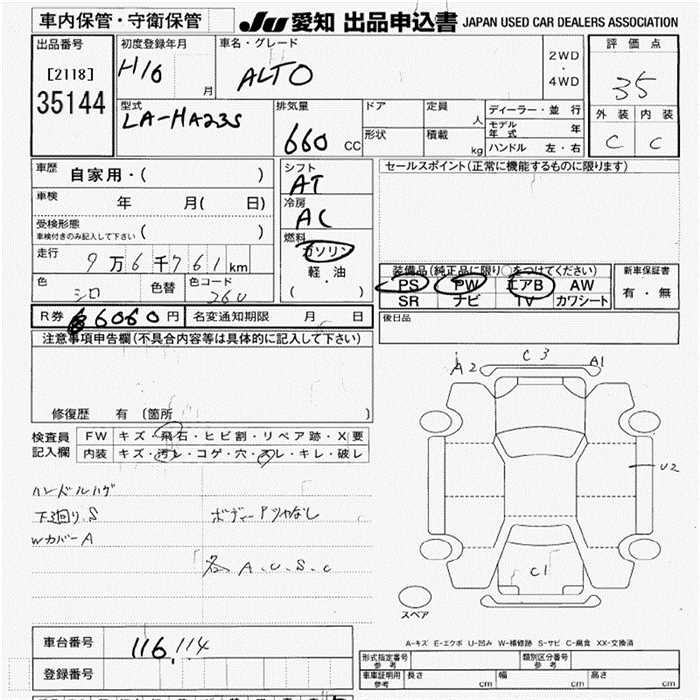 車内保管・守衛保管
JU 愛知 出品申込書 JAPAN USED CAR DEALERS ASSOCIATION
出品番号
[2118]
35144
初度登録年月
H16 月
車名・グレード
ALTO
2WD
・
4WD
評価点
35
外装 内装
C C
型式
LA-HA23S
排気量
660 CC
ドア
形状
定員 人
積載 kg
ディーラー・並 行
モデル年式 年
ハンドル 左・右
車歴 自家用・( )
車検 年 月( 日)
受検形態
車検付きのみ記入して下さい ( )
走行 9万6千761km
色 シロ 色替 色コード 26U
シフト
AT
冷房
AC
燃料
ガソリン
軽 油
( ・ )
セールスポイント(正常に機能するものに限ります)
装備品(純正品に限り○をつけてください)
PS PW エアB AW
SR ナビ TV カワシート
新車保証書
有・無
R券 6060円 名変通知期限 月 日
後日品
注意事項申告欄(不具合内容等は具体的に記入して下さい)
修復歴 有 (箇所 )
検査員記入欄
FW キズ・飛石・ヒビ割・リペア跡・X要
内装 キズ・汚レ・コゲ・穴・スレ・キレ・破レ
ハンドルハゲ
下廻り.S ボディーアツヤなし
Wカバー A
各 A.U.S.C
A2 C3 A1
U2
C1
スペア
A-キズ E-エクボ U-凹み W-補修跡 S-サビ C-腐食 XX-交換済
車台番号 116,114
登録番号
形式指定番号 参考
類別区分番号 参考
車庫証明用 参考 長さ cm 幅 cm 高さ cm